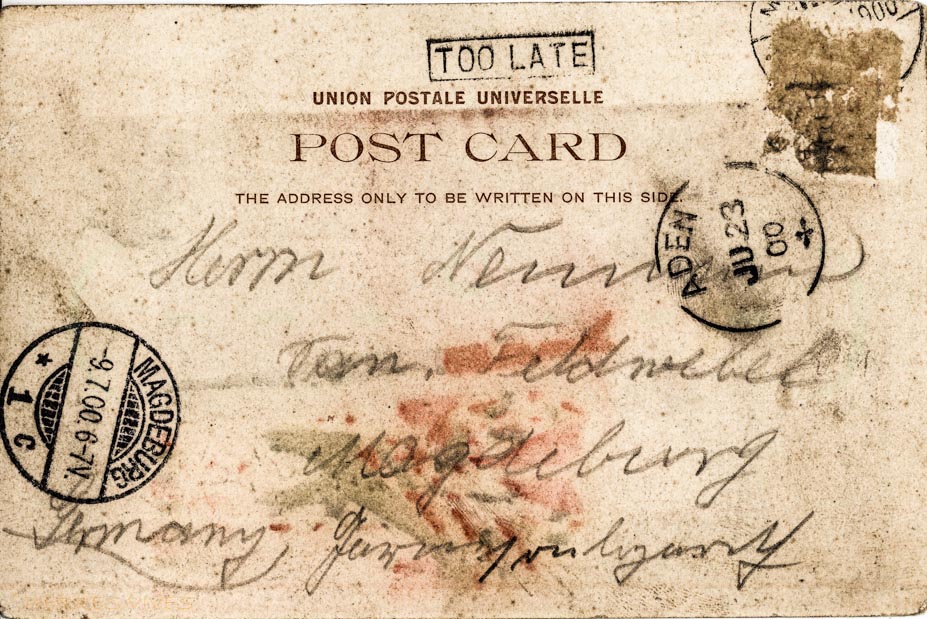 TOO LATE
UNION POSTALE UNIVERSELLE
POST CARD
THE ADDRESS ONLY TO BE WRITTEN ON THIS SIDE.
ADEN
JU 23
00
Herrn Neumann
Feldwebel
MAGDEBURG
-9.7.00.6-7N.
* 1 C
Magdeburg
Germany